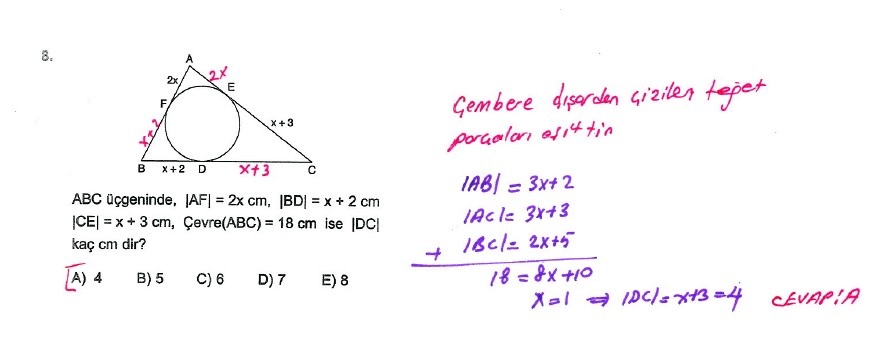 8.
A
2x
2x
E
F
x+2
x+3
B
x+2
D
x+3
C
ABC üçgeninde, |AF| = 2x cm, |BD| = x + 2 cm
|CE| = x + 3 cm, Çevre(ABC) = 18 cm ise |DC|
kaç cm dir?
A) 4 B) 5 C) 6 D) 7 E) 8
Çembere dışarden çizilen teğet
parçaları eşittir
|AB| = 3x+2
|AC| = 3x+3
+ |BC| = 2x+5
18 = 8x+10
x=1 ⇒ |DC| = x+3 = 4 CEVAP:A